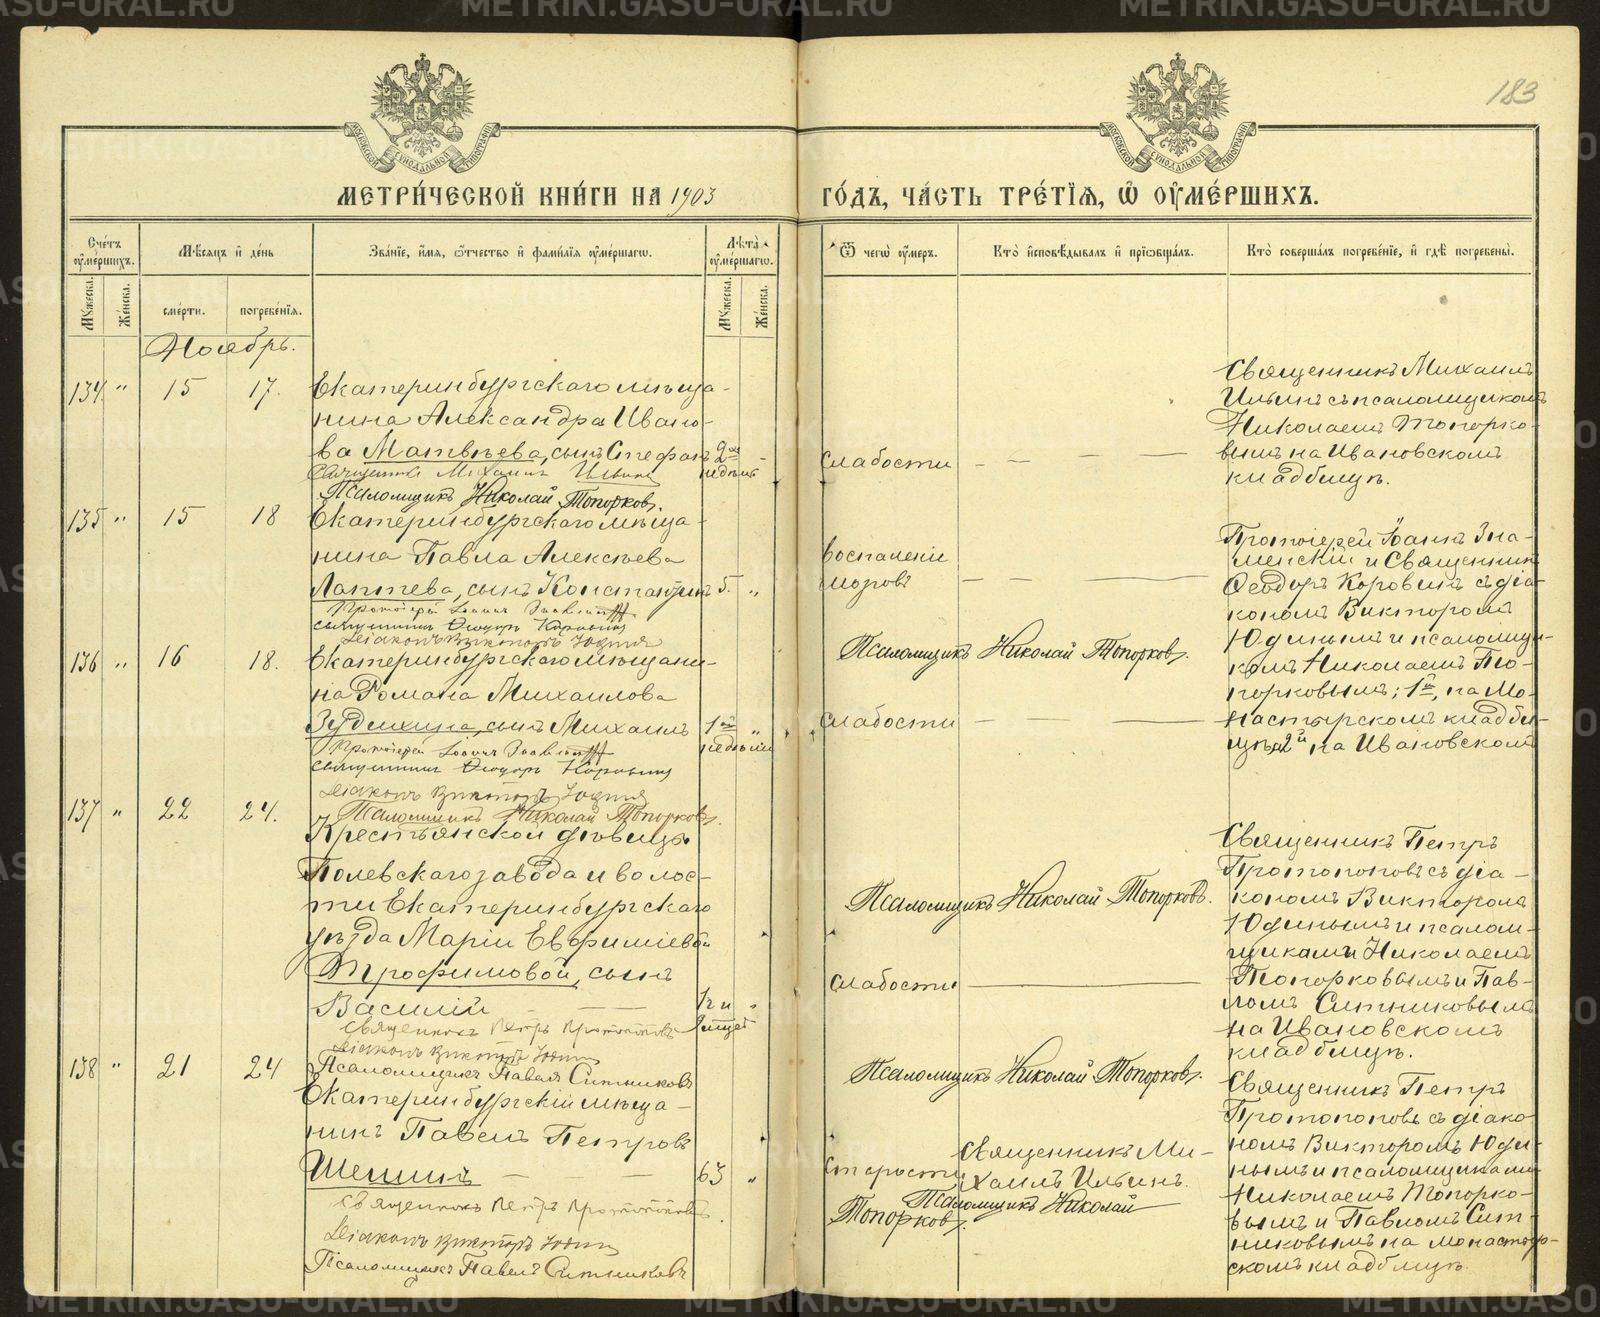 183
МЕТРИ́ЧЕСКОЙ КНИ́ГИ НА 1903
ГО́ДЪ, ЧА́СТЬ ТРЕ́ТІѦ, Ѡ҆ ОУ҆МЕ́РШИХЪ.
Сче́тъ оу҆ме́ршихъ.
Мꙋ́жеска.
Же́нска.
Мѣ́сяцъ и҆ де́нь
сме́рти.
погребе́нїѧ.
Зва́нїе, и҆́мѧ, ѻ҆́тчество и҆ фами́лїѧ оу҆ме́ршагѡ.
Лѣ́та оу҆ме́ршагѡ.
Мꙋ́жеска.
Же́нска.
Ѿ чегѡ̀ оу҆́меръ.
Кто̀ и҆сповѣ́дывалъ и҆ прїѡбща́лъ.
Кто̀ соверша́лъ погребе́нїе, и҆ гдѣ̀ погребены̀.
Ноябрь.
134 " 15 17.
Екатеринбургскаго мѣща-
нина Александра Ивано-
ва Матвѣева, сынъ Стефанъ
2 недѣль
Священникъ Михаилъ Ильинъ
Псаломщикъ Николай Топорковъ.
слабости
Священникъ Михаилъ
Ильинъ съ псаломщикомъ
Николаемъ Топорко-
вымъ на Ивановскомъ
кладбищѣ.
135 " 15 18
Екатеринбургскаго мѣща-
нина Павла Алексѣева
Лаптева, сынъ Константинъ
5. "
Протоіерей Іоаннъ Знаменскій
Священникъ Ѳеодоръ Коровинъ
Діаконъ Викторъ Юдинъ
воспаленіе
мозговъ
Псаломщикъ Николай Топорковъ.
Протоіерей Іоаннъ Зна-
менскій и Священникъ
Ѳеодоръ Коровинъ съ діа-
кономъ Викторомъ
Юдинымъ и псаломщи-
комъ Николаемъ То-
порковымъ; 1й, на Мо-
настырскомъ кладби-
щѣ, 2й на Ивановскомъ
136 " 16 18.
Екатеринбургскаго мѣщани-
на Романа Михаилова
Зудихина, сынъ Михаилъ
недѣли "
Протоіерей Іоаннъ Знаменскій
Священникъ Ѳеодоръ Коровинъ
Діаконъ Викторъ Юдинъ
Псаломщикъ Николай Топорковъ.
слабости
137 " 22 24.
Крестьянской дѣвицы
Полевскаго завода и волос-
ти Екатеринбургскаго
уѣзда Маріи Евфиміевой
Трофимовой, сынъ
Василій
"
Священникъ Петръ Протопоповъ
Діаконъ Викторъ Юдинъ
Псаломщикъ Павелъ Ситниковъ
Псаломщикъ Николай Топорковъ.
слабости
Священникъ Петръ
Протопоповъ съ діа-
кономъ Викторомъ
Юдинымъ и псалом-
щиками Николаемъ
Топорковымъ и Пав-
ломъ Ситниковымъ
на Ивановскомъ
кладбищѣ.
138 " 21 24
Екатеринбургскій мѣща-
нинъ Павелъ Петровъ
Шешинъ
63 "
Священникъ Петръ Протопоповъ
Діаконъ Викторъ Юдинъ
Псаломщикъ Павелъ Ситниковъ
Псаломщикъ Николай Топорковъ.
старости
Священникъ Ми-
хаилъ Ильинъ.
Псаломщикъ Николай
Топорковъ.
Священникъ Петръ
Протопоповъ съ діако-
номъ Викторомъ Юди-
нымъ и псаломщиками
Николаемъ Топорко-
вымъ и Павломъ Сит-
никовымъ на монастыр-
скомъ кладбищѣ.
METRIKI.GASU-URAL.RU